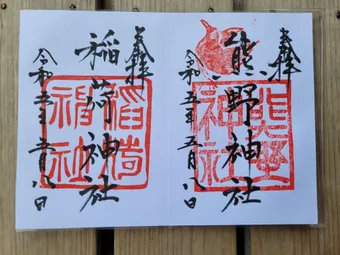 奉拝
熊野神社
令和五年五月八日
奉拝
稲荷神社
令和五年五月八日
稲荷
神社